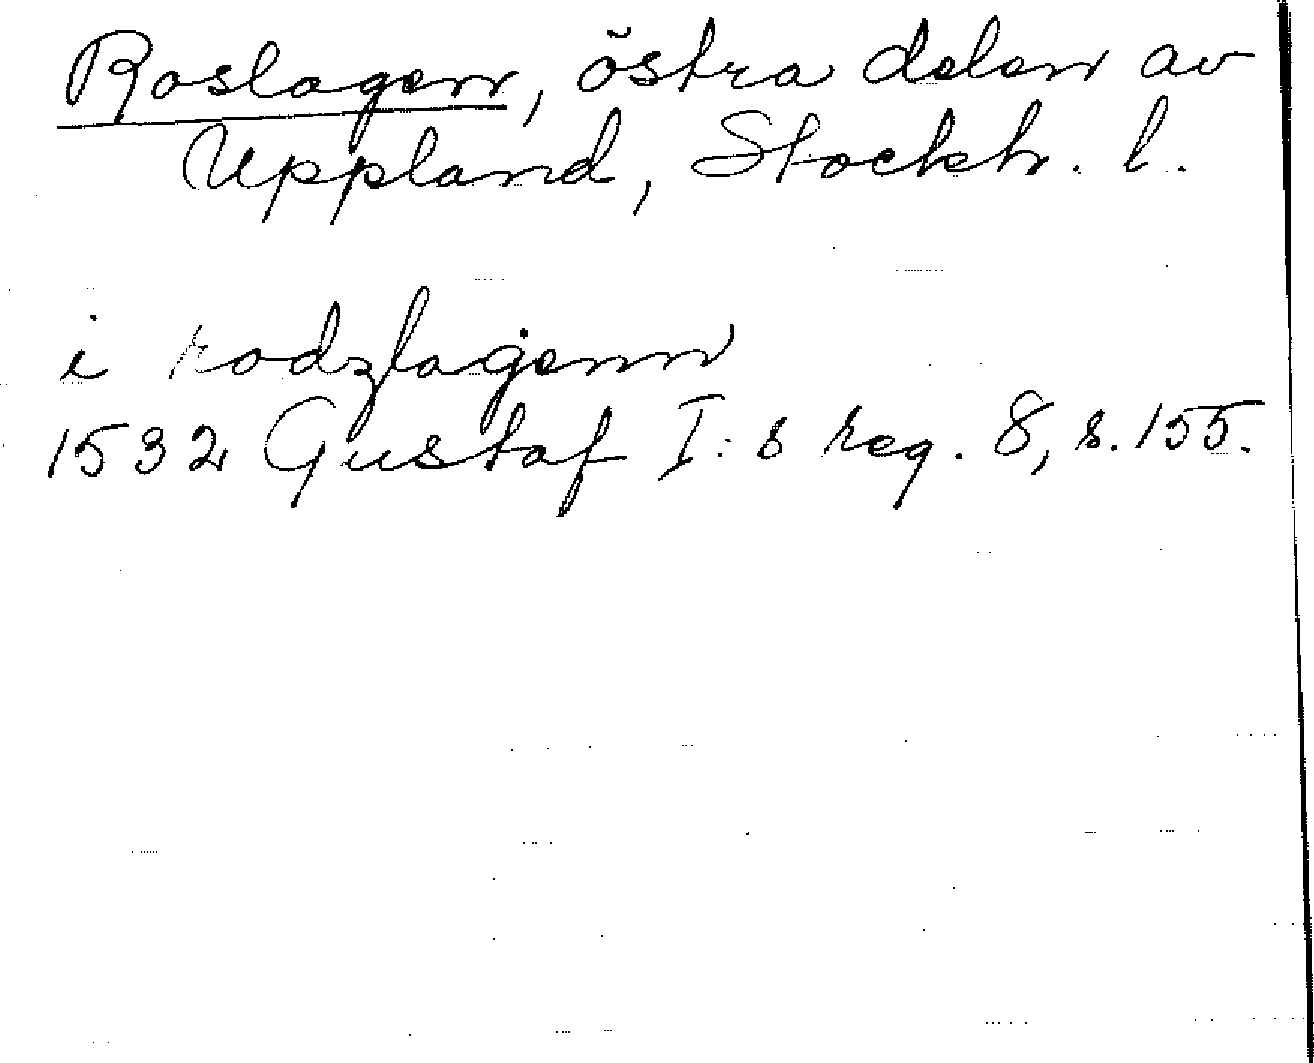 Roslagen, östra delen av
Uppland, Stockh. l.
i rodzlagenn
1532 Gustaf I:s reg. 8, s. 155.